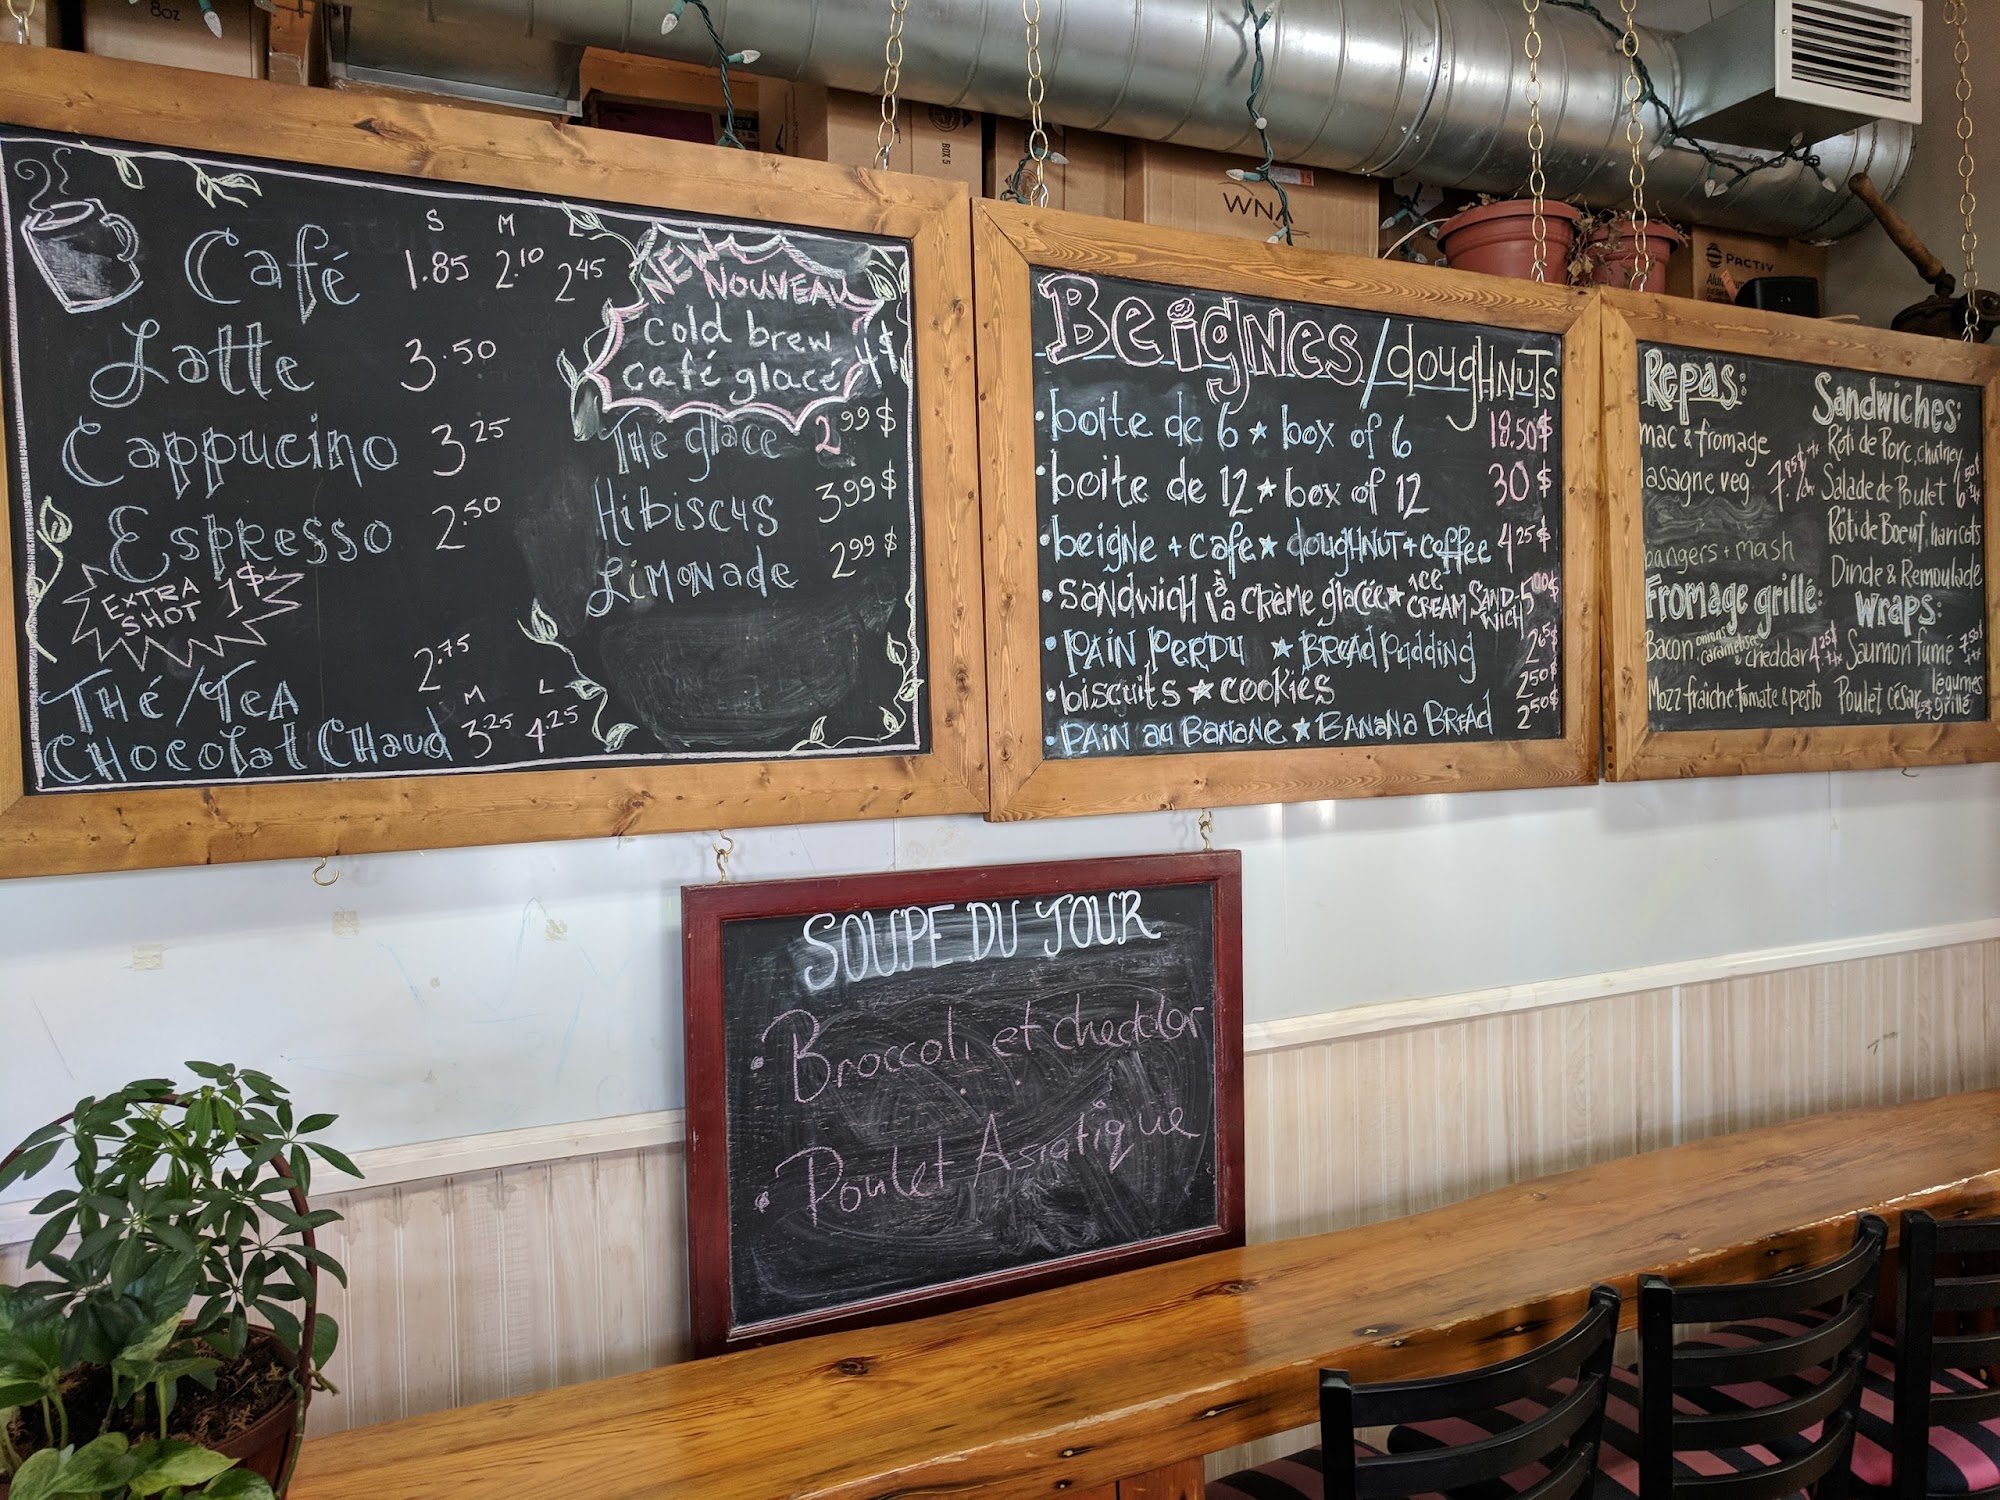 8oz
BOX 5
WNA
PACTIV
S M L
Café 1.85 2.10 2.45
Latte 3.50
Cappucino 3.25
Espresso 2.50
EXTRA SHOT 1$
THÉ/TEA 2.75
M L
CHocolat CHaud 3.25 4.25
NEW
NOUVEAU
cold brew
café glacé 4$
THé glacé 2.99$
HibiscUS 3.99$
LiMONade 2.99$
BeigNes/dougHNUTS
• boite de 6 ★ box of 6 18.50$
• boite de 12 ★ box of 12 30$
• beigne + cafe ★ dougHNUT + coffee 4.25$
• SaNdwicH à la crème glacée ★ ICE CREAM SANDWICH 5.00$
• PAIN PERDU ★ BREAd Pudding 2.65$
• biscuits ★ cookies 2.50$
• PAIN au BaNaNe ★ BaNaNa BREAd 2.50$
Repas:
mac & fromage
lasagne veg. 7.95$
bangers + mash
Fromage grillé:
Bacon, onions caramelisée & cheddar 4.25$
Mozz fraîche, tomate & pesto
Sandwiches:
Rôti de Porc, chutney
Salade de Poulet 6.50$
Rôti de Boeuf, haricots
Dinde & Remoulade
Wraps:
Saumon fumé 7.50$
Poulet césar
légumes grillé
SOUPE DU JOUR
• Broccoli et cheddar
• Poulet Asiatique